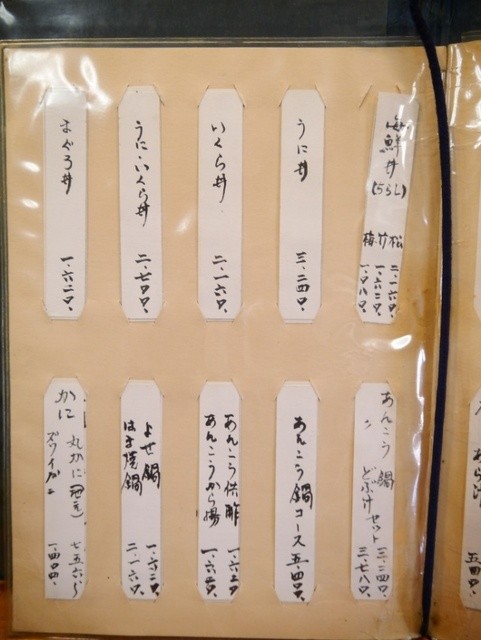 海鮮丼
(ちらし)
松 二、一六〇円、
竹 一、六二〇円、
梅 一、〇八〇円、
うに丼 三、二四〇円、
いくら丼 二、一六〇円、
うに・いくら丼 二、七〇〇円、
まぐろ丼 一、六二〇円、
あんこう鍋 三、二四〇円、
〃 どぶ汁セット 三、七八〇円、
あんこう鍋コース 五、四〇〇円、
あんこう供酢 一、六二〇円、
あんこうから揚 一、六二〇円、
よせ鍋 一、六二〇円、
はま焼鍋 二、一六〇円、
かに
丸かに 七五六〜
ズワイガニ